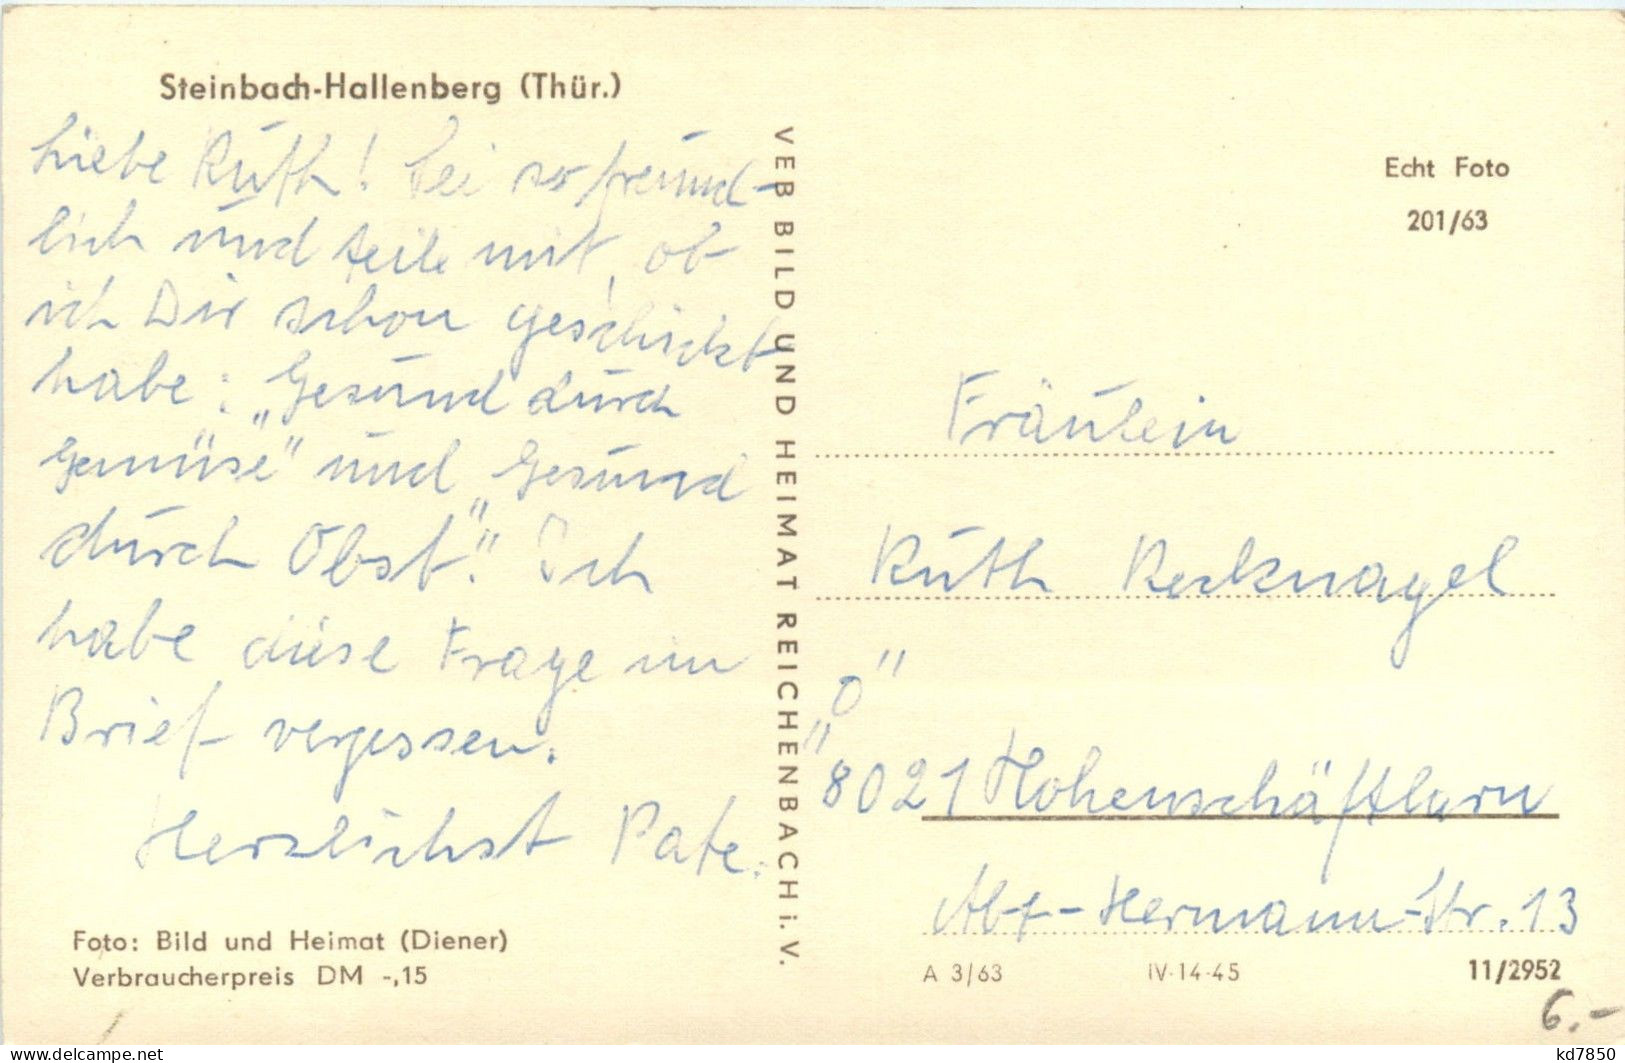 Steinbach-Hallenberg (Thür.)
Liebe Ruth! Sei so freund-
lich und teile mit, ob
ich Dir schon geschickt
habe: „Gesund durch
Gemüse" und „Gesund
durch Obst". Ich
habe diese Frage im
Brief vergessen.
Herzlichst Pate.
Foto: Bild und Heimat (Diener)
Verbraucherpreis DM -,15
VEB BILD UND HEIMAT REICHENBACH i. V.
Echt Foto
201/63
Fräulein
Ruth Recknagel
8021 Hohenschäftlarn
Abt-Hermann-Str. 13
A 3/63 IV-14-45 11/2952
6.-
kd7850